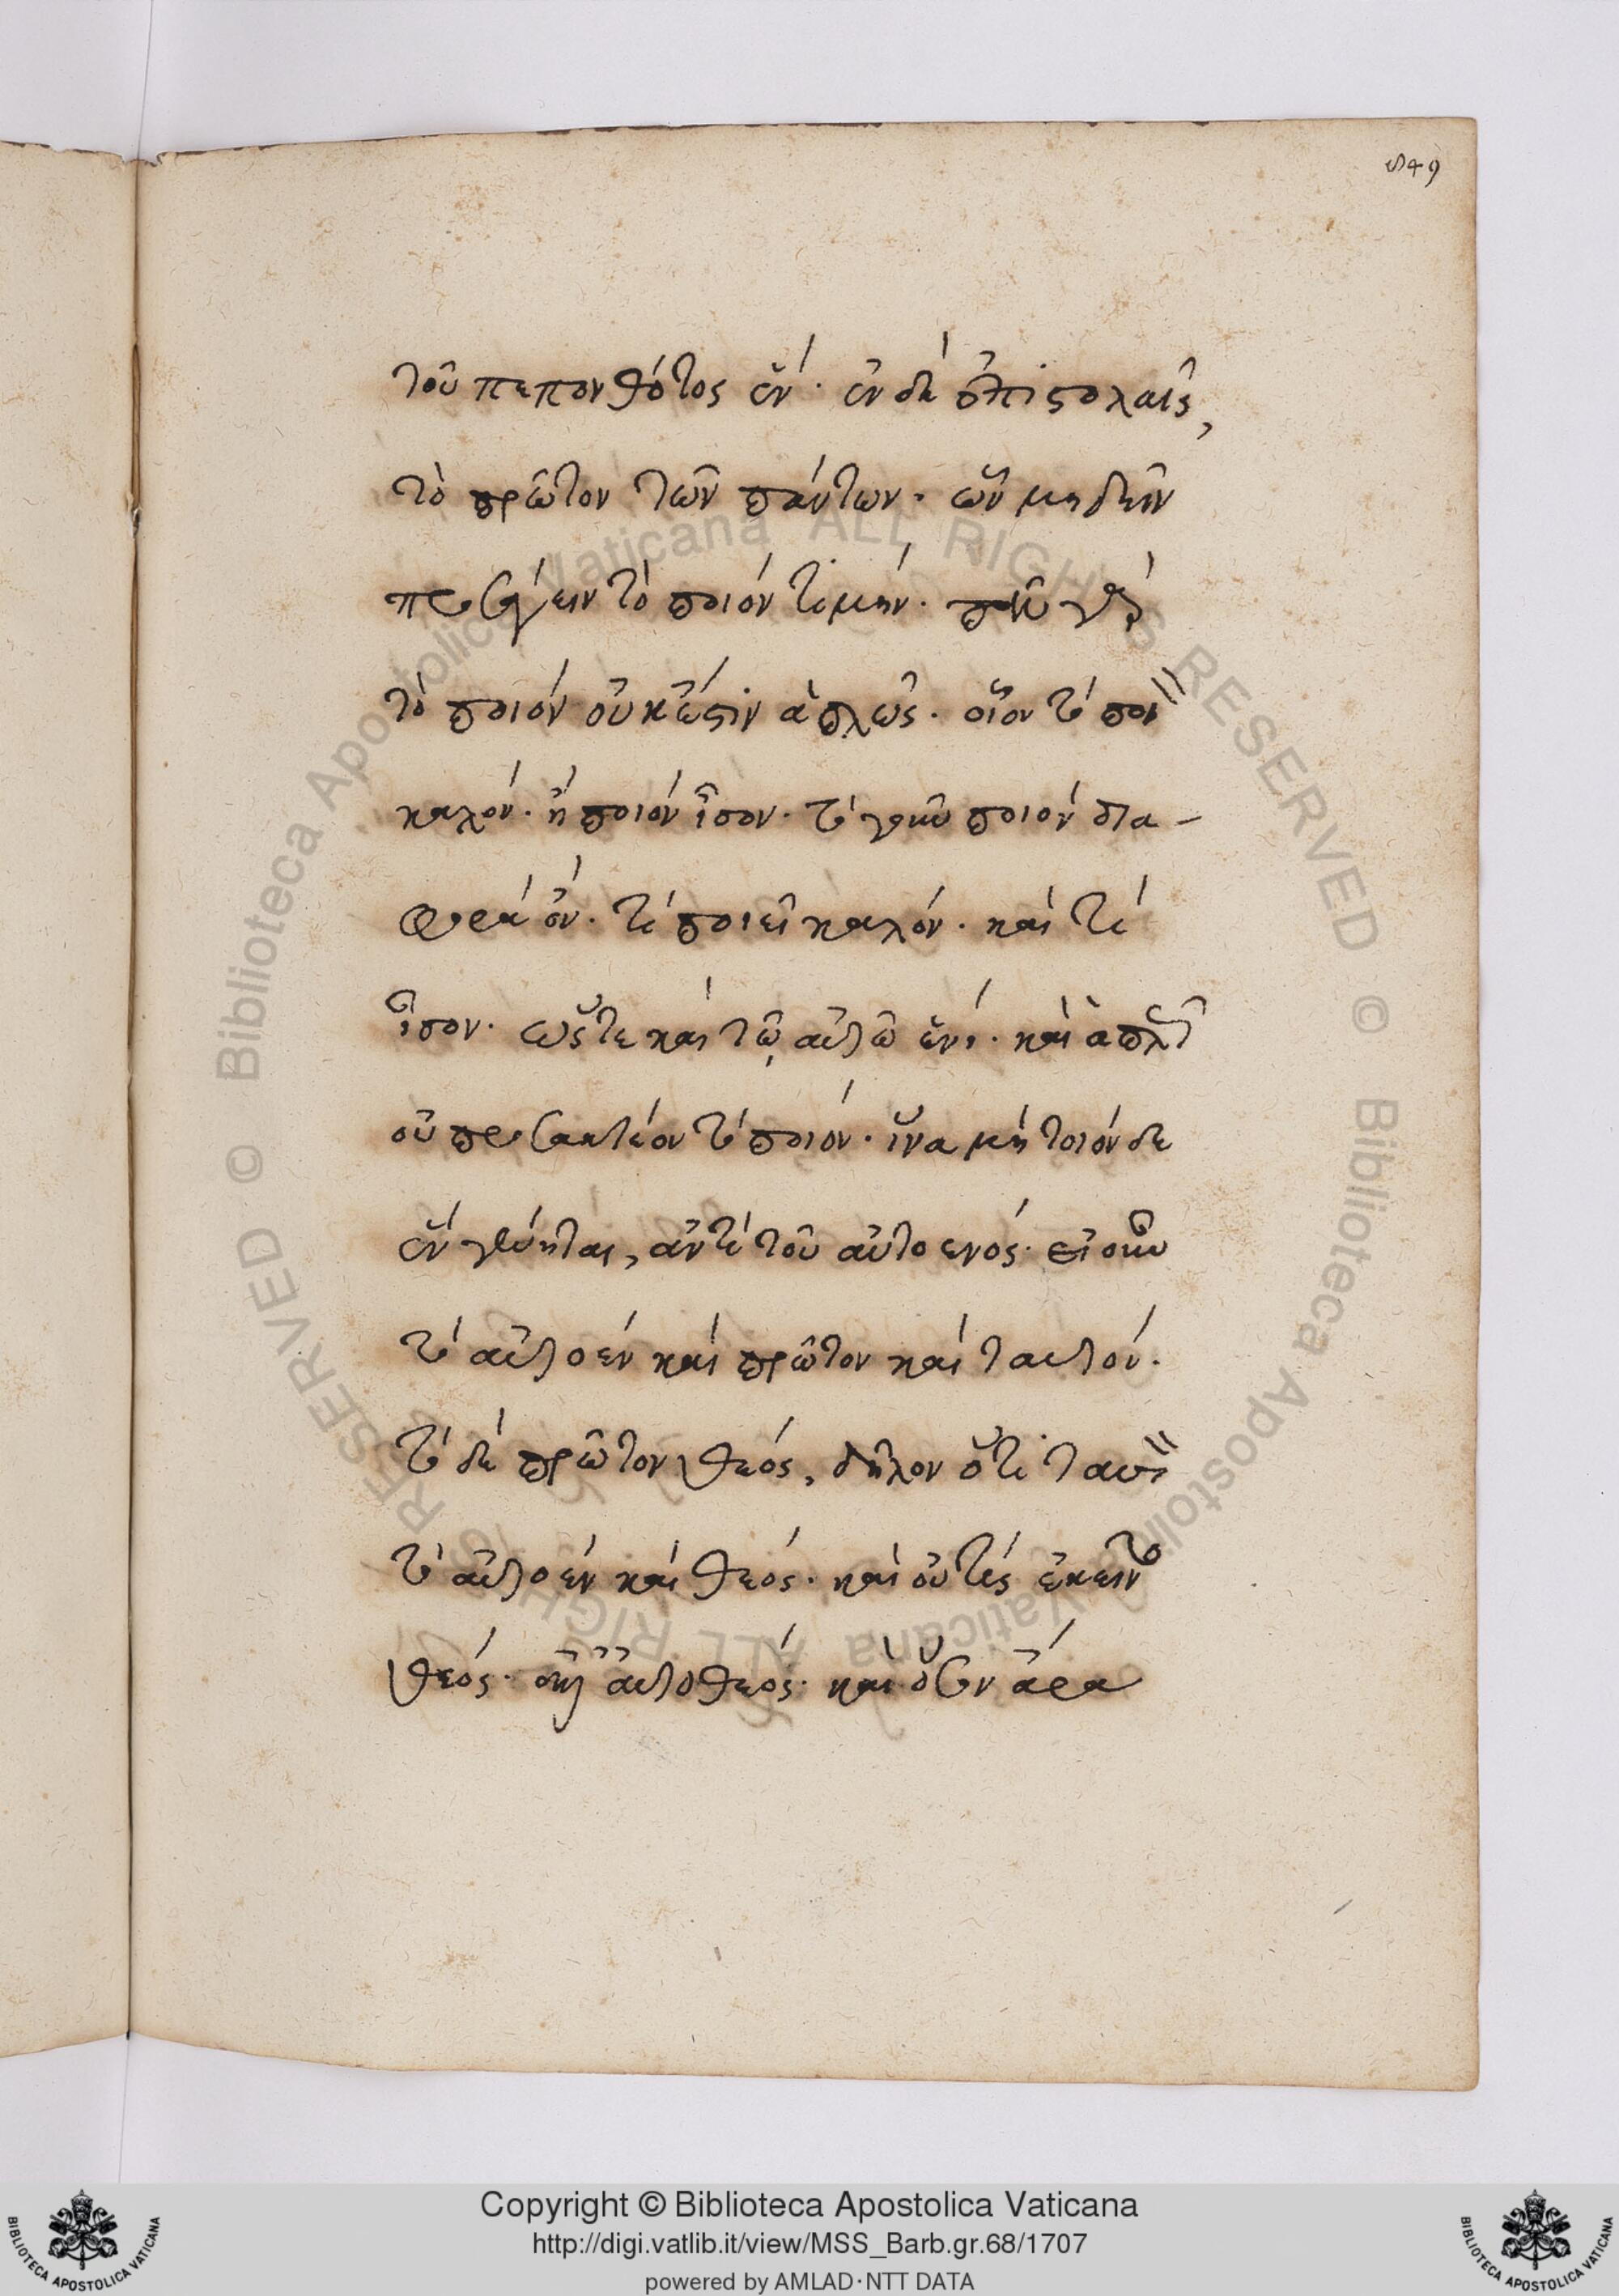 849
τοῦ πεπονθότος ἕν· ἐν δὲ ἐπιστολαῖς,
τὸ πρῶτον τῶν πάντων· ὧν μηδεὶν
προσάγειν τὸ ποιόν τι μήν· πᾶν γὰρ
τὸ ποιὸν οὐκ ἔστιν ἁπλῶς· οἷον τὸ ποιὸν
καλόν· ἢ ποιὸν ἴσον· τὸ γοῦν ποιὸν δια-
φορὰ ὄν· τὶ ποιεῖ καλόν· καὶ τὶ
ἴσον· ὥστε καὶ τῷ αὐτῶ ἑνί· καὶ ἁπλῶς
οὐ προσακτέον τὸ ποιόν· ἵνα μὴ τοιόνδε
ἓν γένηται, ἀντὶ τοῦ αὐτοενός· εἰ οὖν
τὸ αὐτοὲν καὶ πρῶτον καὶ ταυτόν·
τὸ δὲ πρῶτον θεός, δῆλον ὅτι ταυτὸν
τὸ αὐτοὲν καὶ θεός· καὶ οὔτις ἐκεῖνο
θεός· ἀλλ' αὐτοθεός· καὶ ὅσοι ἄρα
Copyright © Biblioteca Apostolica Vaticana
http://digi.vatlib.it/view/MSS_Barb.gr.68/1707
powered by AMLAD·NTT DATA
BIBLIOTECA APOSTOLICA VATICANA
BIBLIOTECA APOSTOLICA VATICANA
© Biblioteca Apostolica Vaticana ALL RIGHTS RESERVED
© Biblioteca Apostolica Vaticana ALL RIGHTS RESERVED